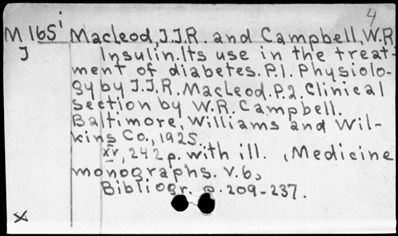 4
M165i Macleod, J.J.R. and Campbell, W.R.
J Insulin. Its use in the treat-
ment of diabetes. P.1. Physiolo-
gy by J.J.R. Macleod. P.2. Clinical
section by W.R. Campbell.
Baltimore, Williams and Wil-
kins Co., 1925.
xv, 242 p. with ill. , Medicine
monographs. v.6,
Bibliogr. p. 209-237.
x